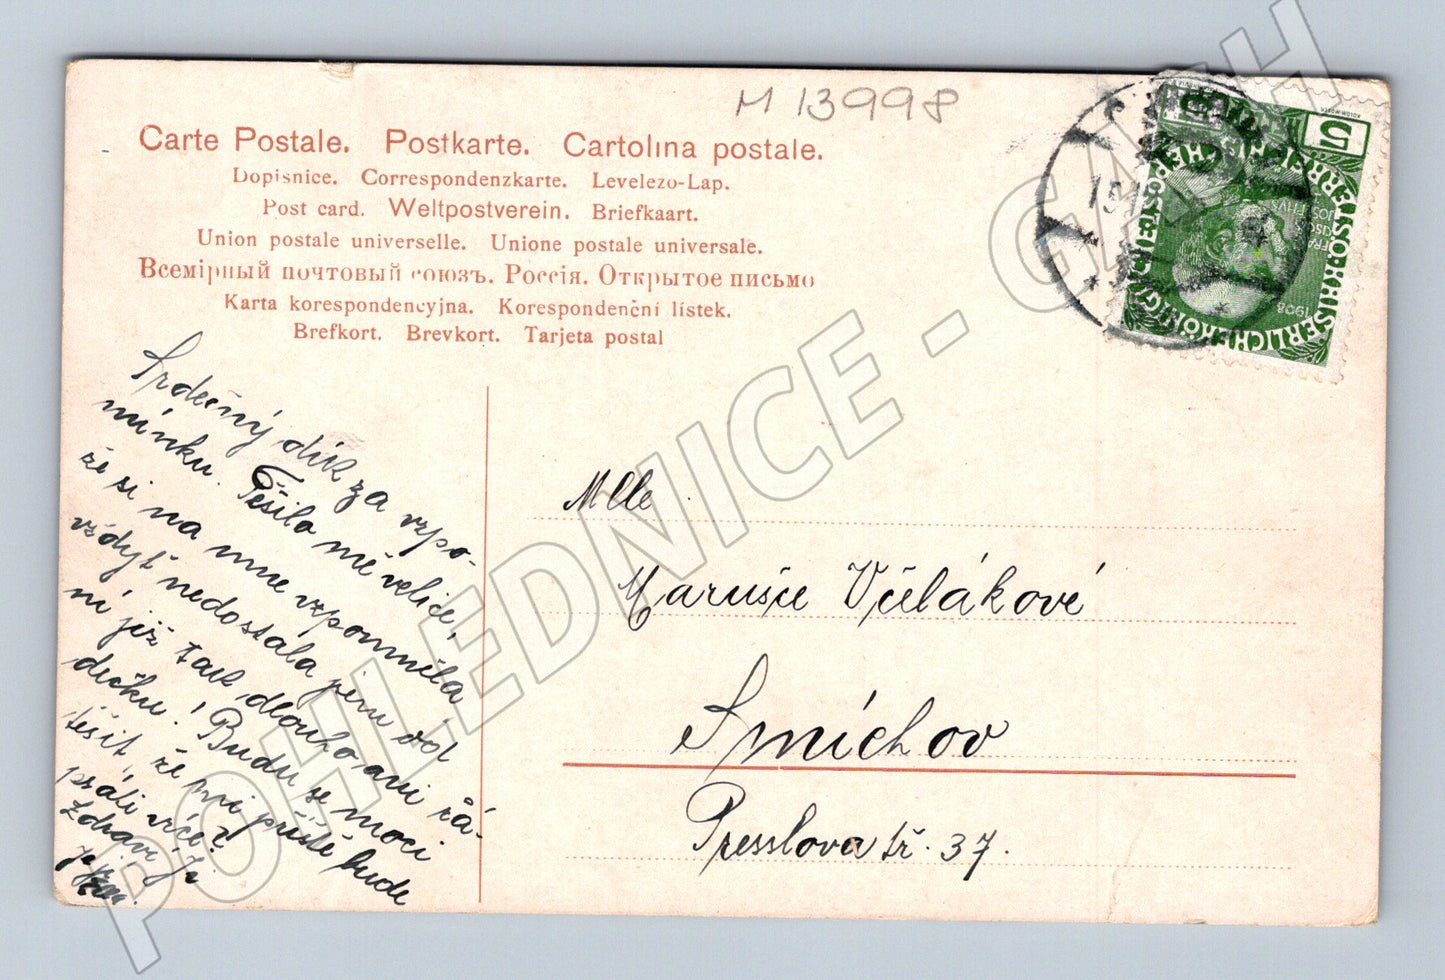 M 13998
Carte Postale. Postkarte. Cartolina postale.
Dopisnice. Correspondenzkarte. Levelezo-Lap.
Post card. Weltpostverein. Briefkaart.
Union postale universelle. Unione postale universale.
Всемірный почтовый союзъ. Россія. Открытое письмо
Karta korespondencyjna. Korespondenční lístek.
Brefkort. Brevkort. Tarjeta postal
Srdečný dík za vzpo-
mínku. Těšilo mě velice,
že si na mne vzpomněla
vždyť nedostala jsem od
ní již tak dlouho, ani řá-
dečku! Budu se moci
těšit, že mi příště bude
psáti více?
Zdraví Ji
Mlle
Marušce Včelákové
Smíchov
Presslova tř. 37.
5
KAISERLICHEKÖNIGLICHE
ÖSTERREICHISCHE
POST
1908
POHLEDNICE - GACH